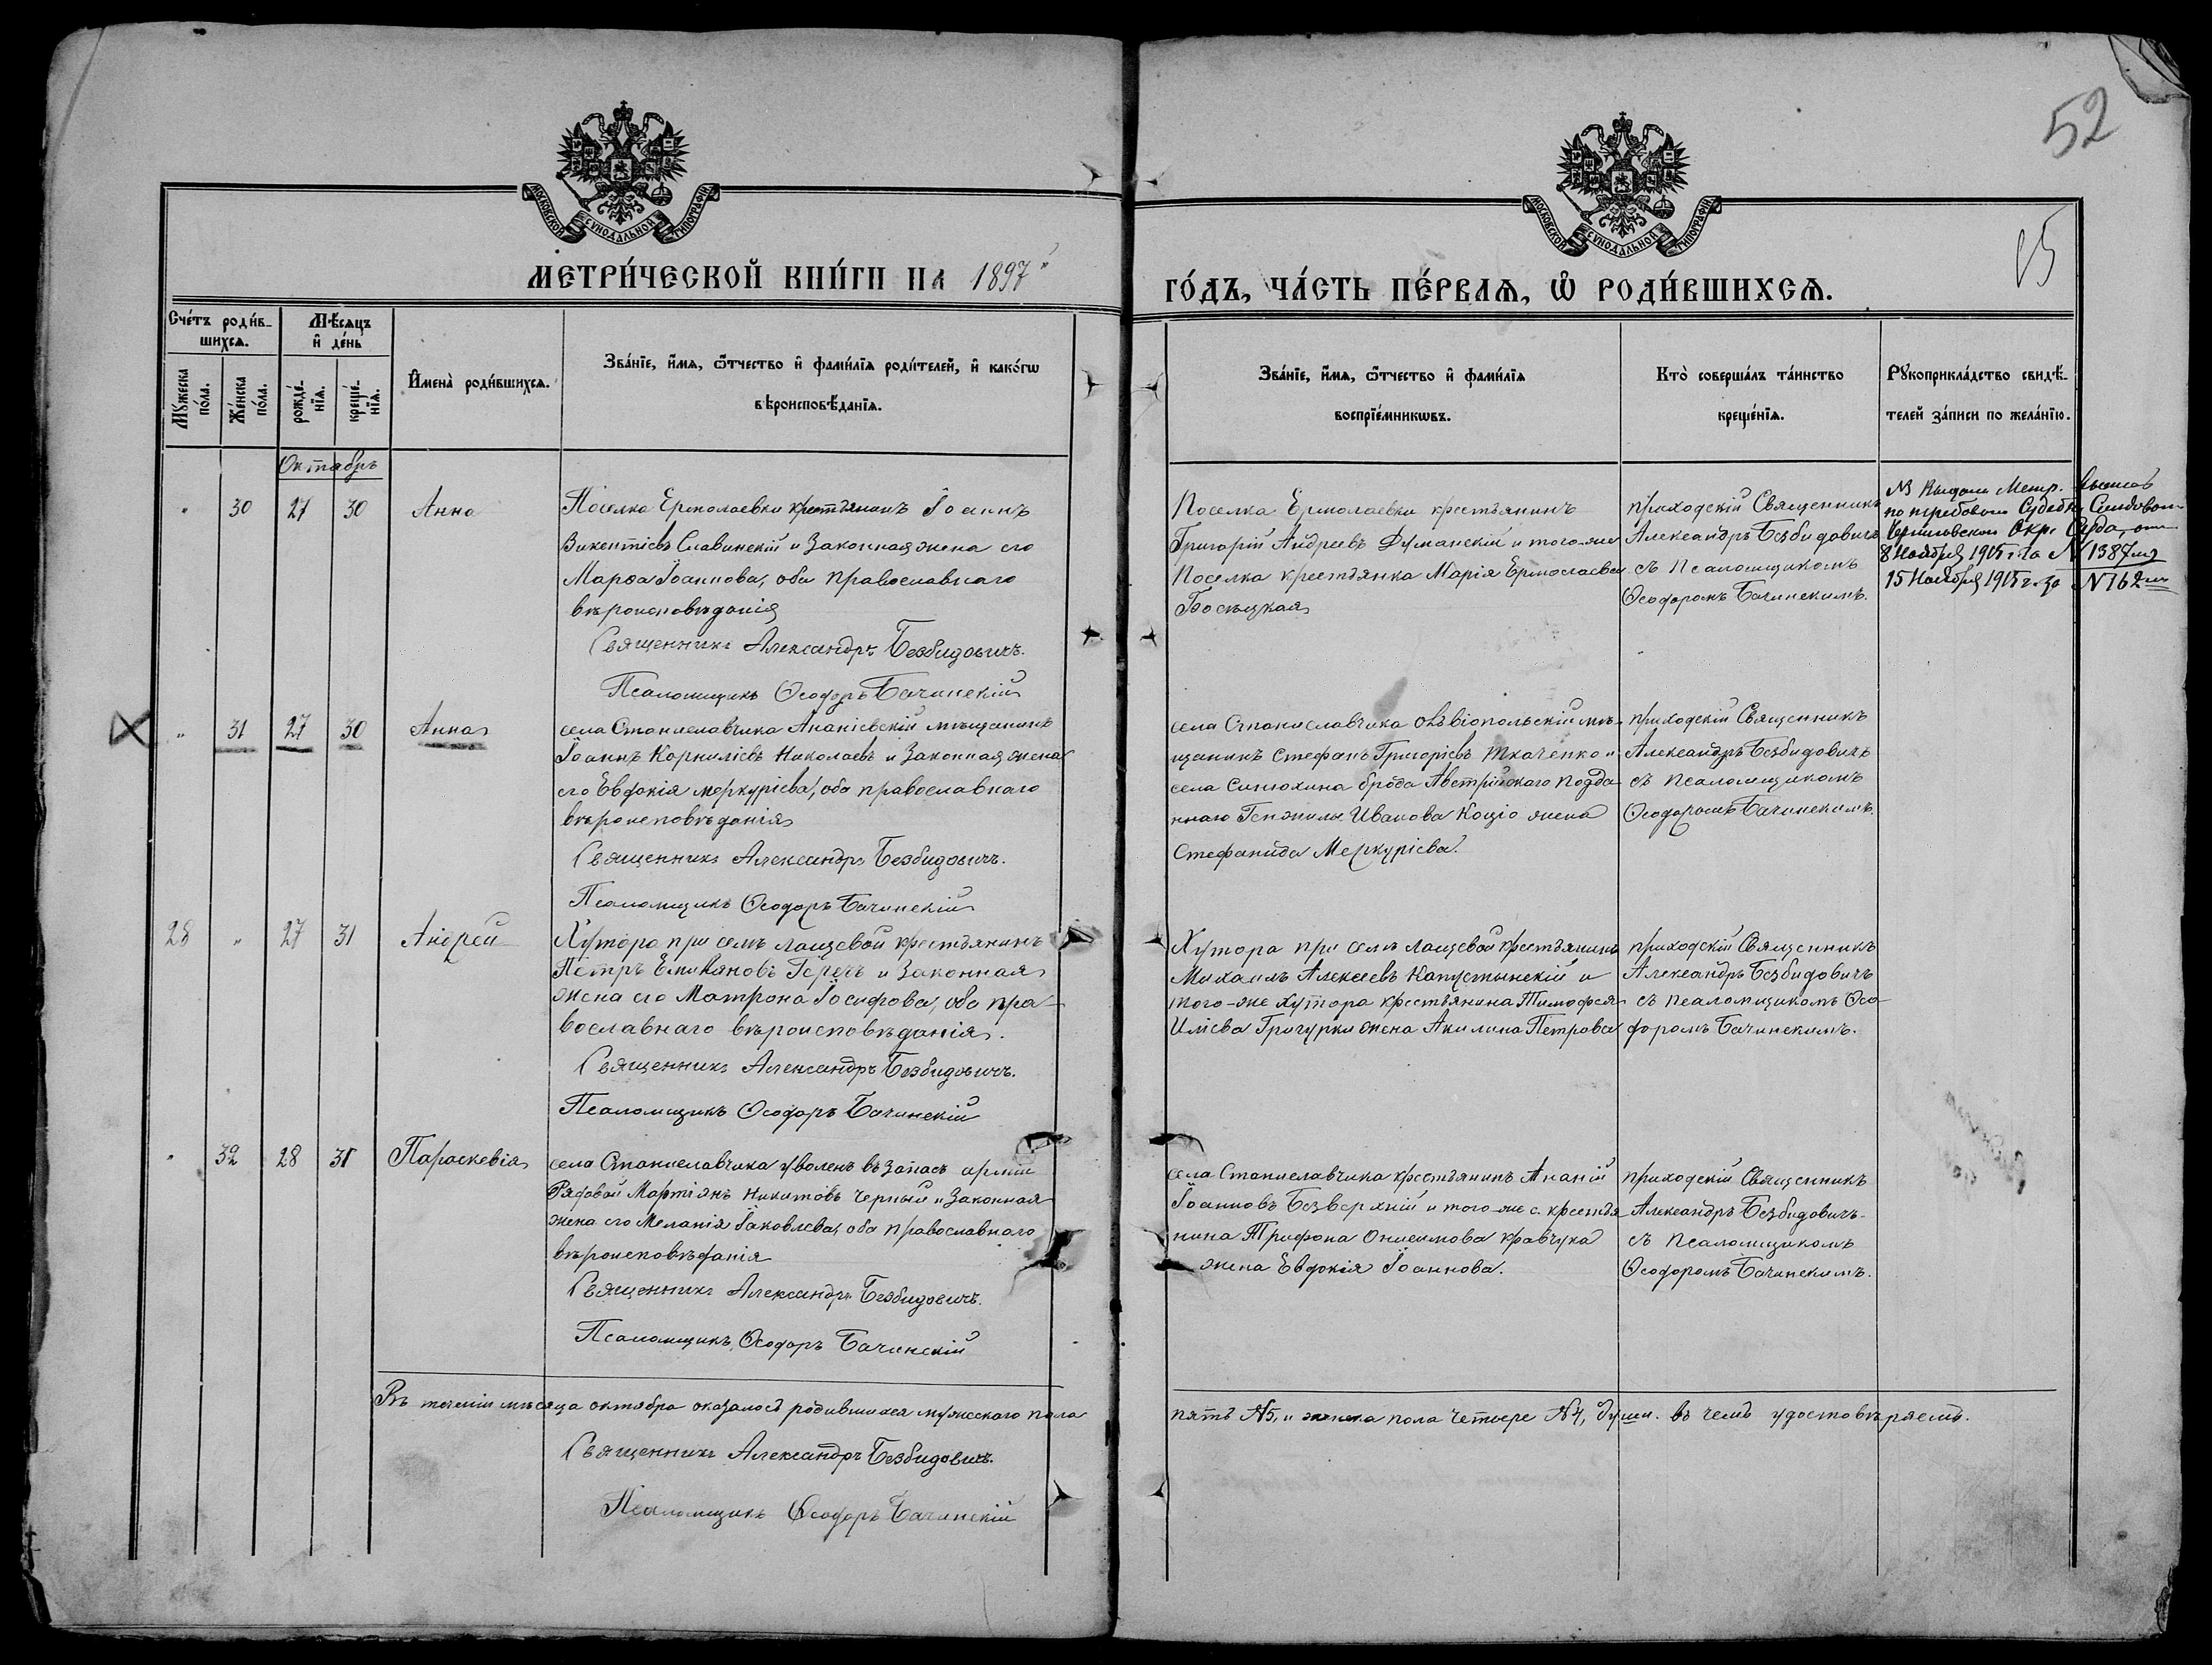 52
15
МОСКОВСКОЙ СѴНОДАЛЬНОЙ ТИПОГРАФІИ
МОСКОВСКОЙ СѴНОДАЛЬНОЙ ТИПОГРАФІИ
МЕТРИ́ЧЕСКОЙ КНИ́ГИ НА 1897
ГО́ДЪ, ЧА́СТЬ ПЕ́РВАѦ, Ѡ РОДИ́ВШИХСѦ.
Сче́тъ роди́в-
шихсѧ.
Мꙋжеска
по́ла.
Же́нска
по́ла.
Мѣ́сѧцъ
и҆ де́нь
рожде́-
нїѧ.
креще́-
нїѧ.
И҆мена̀ роди́вшихсѧ.
Зва́нїе, и҆́мѧ, ѻ҆́тчество и҆ фами́лїѧ роди́телей, и҆ како́гѡ
вѣроисповѣ́данїѧ.
Зва́нїе, и҆́мѧ, ѻ҆́тчество и҆ фами́лїѧ
воспрїе́мникѡвъ.
Кто̀ соверша́лъ та́инство
креще́нїѧ.
Рꙋкоприкла́дство свидѣ́-
телей за́писи по жела́нїю.
Октябрь
" 30 27 30 Анна
Поселка Ермолаевки крестьянинъ Іоаннъ
Викентіевъ Славинскій и законная жена его
Марѳа Іоаннова, оба православнаго
вѣроисповѣданія
Священникъ Александръ Безбидовичъ.
Псаломщикъ Ѳеодоръ Бачинскій
Поселка Ермолаевки крестьянинъ
Григорій Андреевъ Думанскій и того-же
Поселка крестьянка Марія Ермолаева
приходскій Священникъ
Александръ Безбидовичъ
съ псаломщикомъ
Ѳеодоромъ Бачинскимъ.
Метр.
по требован Судебн
Окр. Суда, от
8 Ноября 1915 г. за № 1387
15 Ноября 1915 г. за № 162
" 31 27 30 Анна
села Станиславчика Ананіевскій мѣщанинъ
Іоаннъ Корниліевъ Николаевъ и законная жена
его Евдокія Меркуріева, оба православнаго
вѣроисповѣданія
Священникъ Александръ Безбидовичъ.
Псаломщикъ Ѳеодоръ Бачинскій
села Станиславчика Ольвіопольскій мѣ-
щанинъ Стефанъ Григоріевъ Ткаченко и
села Синюхина брода Австрійскаго Подда-
ннаго Иванова Коціо жена
Стефанида Меркуріева.
приходскій Священникъ
Александръ Безбидовичъ
съ псаломщикомъ
Ѳеодоромъ Бачинскимъ.
28 " 27 31 Андрей
Хутора при селѣ Лащевой крестьянинъ
Петръ Емиліановъ Герегъ и законная
жена его Матрона Іосифова, оба пра-
вославнаго вѣроисповѣданія.
Священникъ Александръ Безбидовичъ.
Псаломщикъ Ѳеодоръ Бачинскій
Хутора при селѣ Лащевой крестьянинъ
Михаилъ Алексеевъ Капустынскій и
того-же хутора крестьянина Тимофея
Иліева Григурки жена Акилина Петрова
приходскій Священникъ
Александръ Безбидовичъ
съ псаломщикомъ Ѳео-
доромъ Бачинскимъ.
" 32 28 31 Параскевія
села Станиславчика уволенъ въ запасъ арміи
Рядовой Мартіанъ Никитовъ Черный и законная
жена его Меланія Іаковлева, оба православнаго
вѣроисповѣданія
Священникъ Александръ Безбидовичъ.
Псаломщикъ Ѳеодоръ Бачинскій
села Станиславчика крестьянинъ Ананій
Іоанновъ Безверхній и того-же с. крестья-
нина Трифона Онисимова Кравчука
жена Евдокія Іоаннова.
приходскій Священникъ
Александръ Безбидовичъ
съ псаломщикомъ
Ѳеодоромъ Бачинскимъ.
Въ теченіи мѣсяца октября оказалось родившихся мужескаго пола
пять №5, и женска пола четыре №4, души. въ чемъ удостовѣряемъ.
Священникъ Александръ Безбидовичъ.
Псаломщикъ Ѳеодоръ Бачинскій